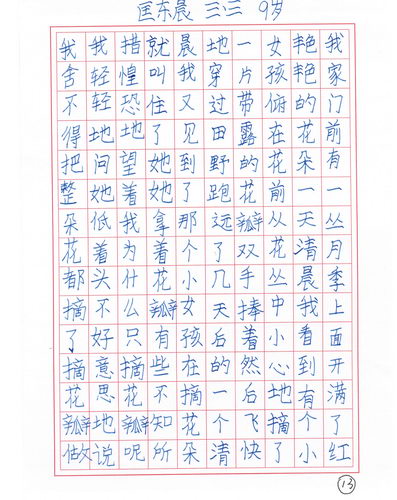 匡东晨 三.三 9岁
我家门前有一丛月季上面开满了红
艳艳的花朵一天清晨我看到有个小
女孩俯在花前从花丛中小心地摘了
一片带露的花瓣双手捧着然后飞快
地穿过田野跑远了几天后的一个清
晨我又见到了那个小女孩在摘花朵
就叫住了她她拿着花瓣有些不知所
措惶恐地望着我为什么只摘花瓣呢
我轻轻地问她低着头不好意思地说
我舍不得把整朵花都摘了摘花瓣做
13